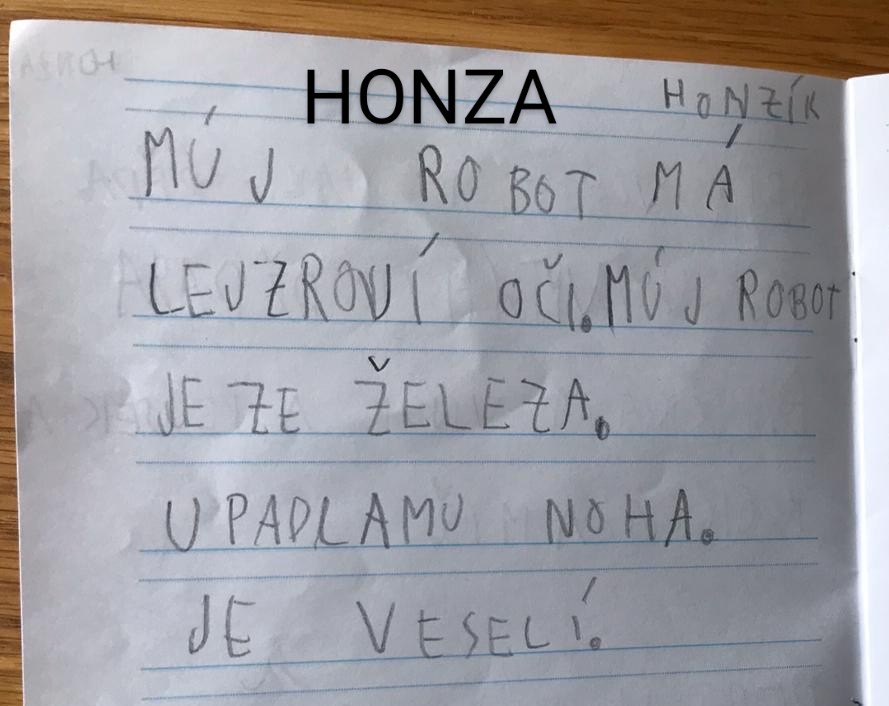 HONZA
HONZÍK
MÚJ ROBOT MÁ
LEJZROVÍ OČI. MÚJ ROBOT
JE ZE ŽELEZA.
UPADLAMU NOHA.
JE VESELÍ.